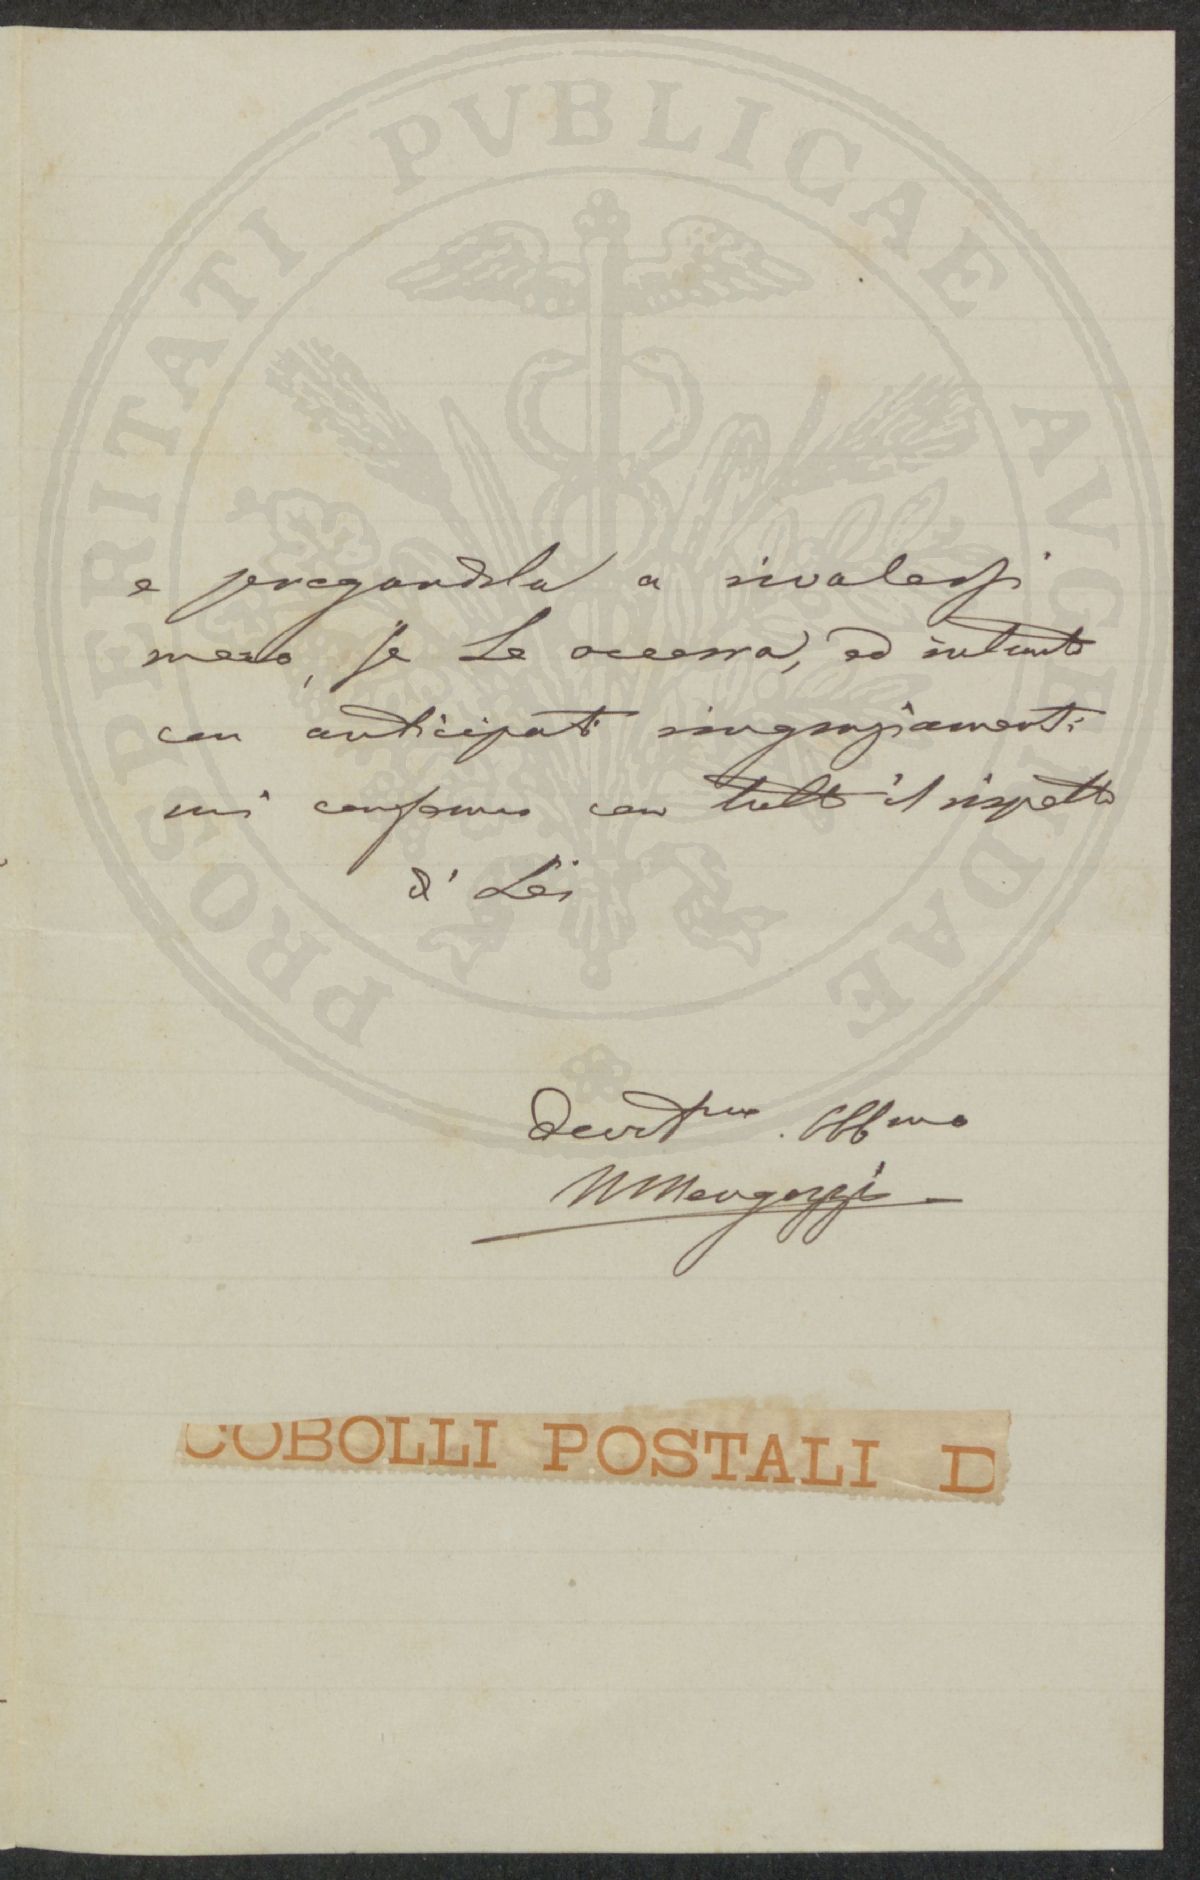 PROSPERITATI PVBLICAE AVGENDAE
e pregandola a rivalersi
meco, se Le occorra, ed intanto
con anticipati ringraziamenti
mi confermo con tutto il rispetto
di Lei
Devotmo. Obbmo
Mengozzi
COBOLLI POSTALI D